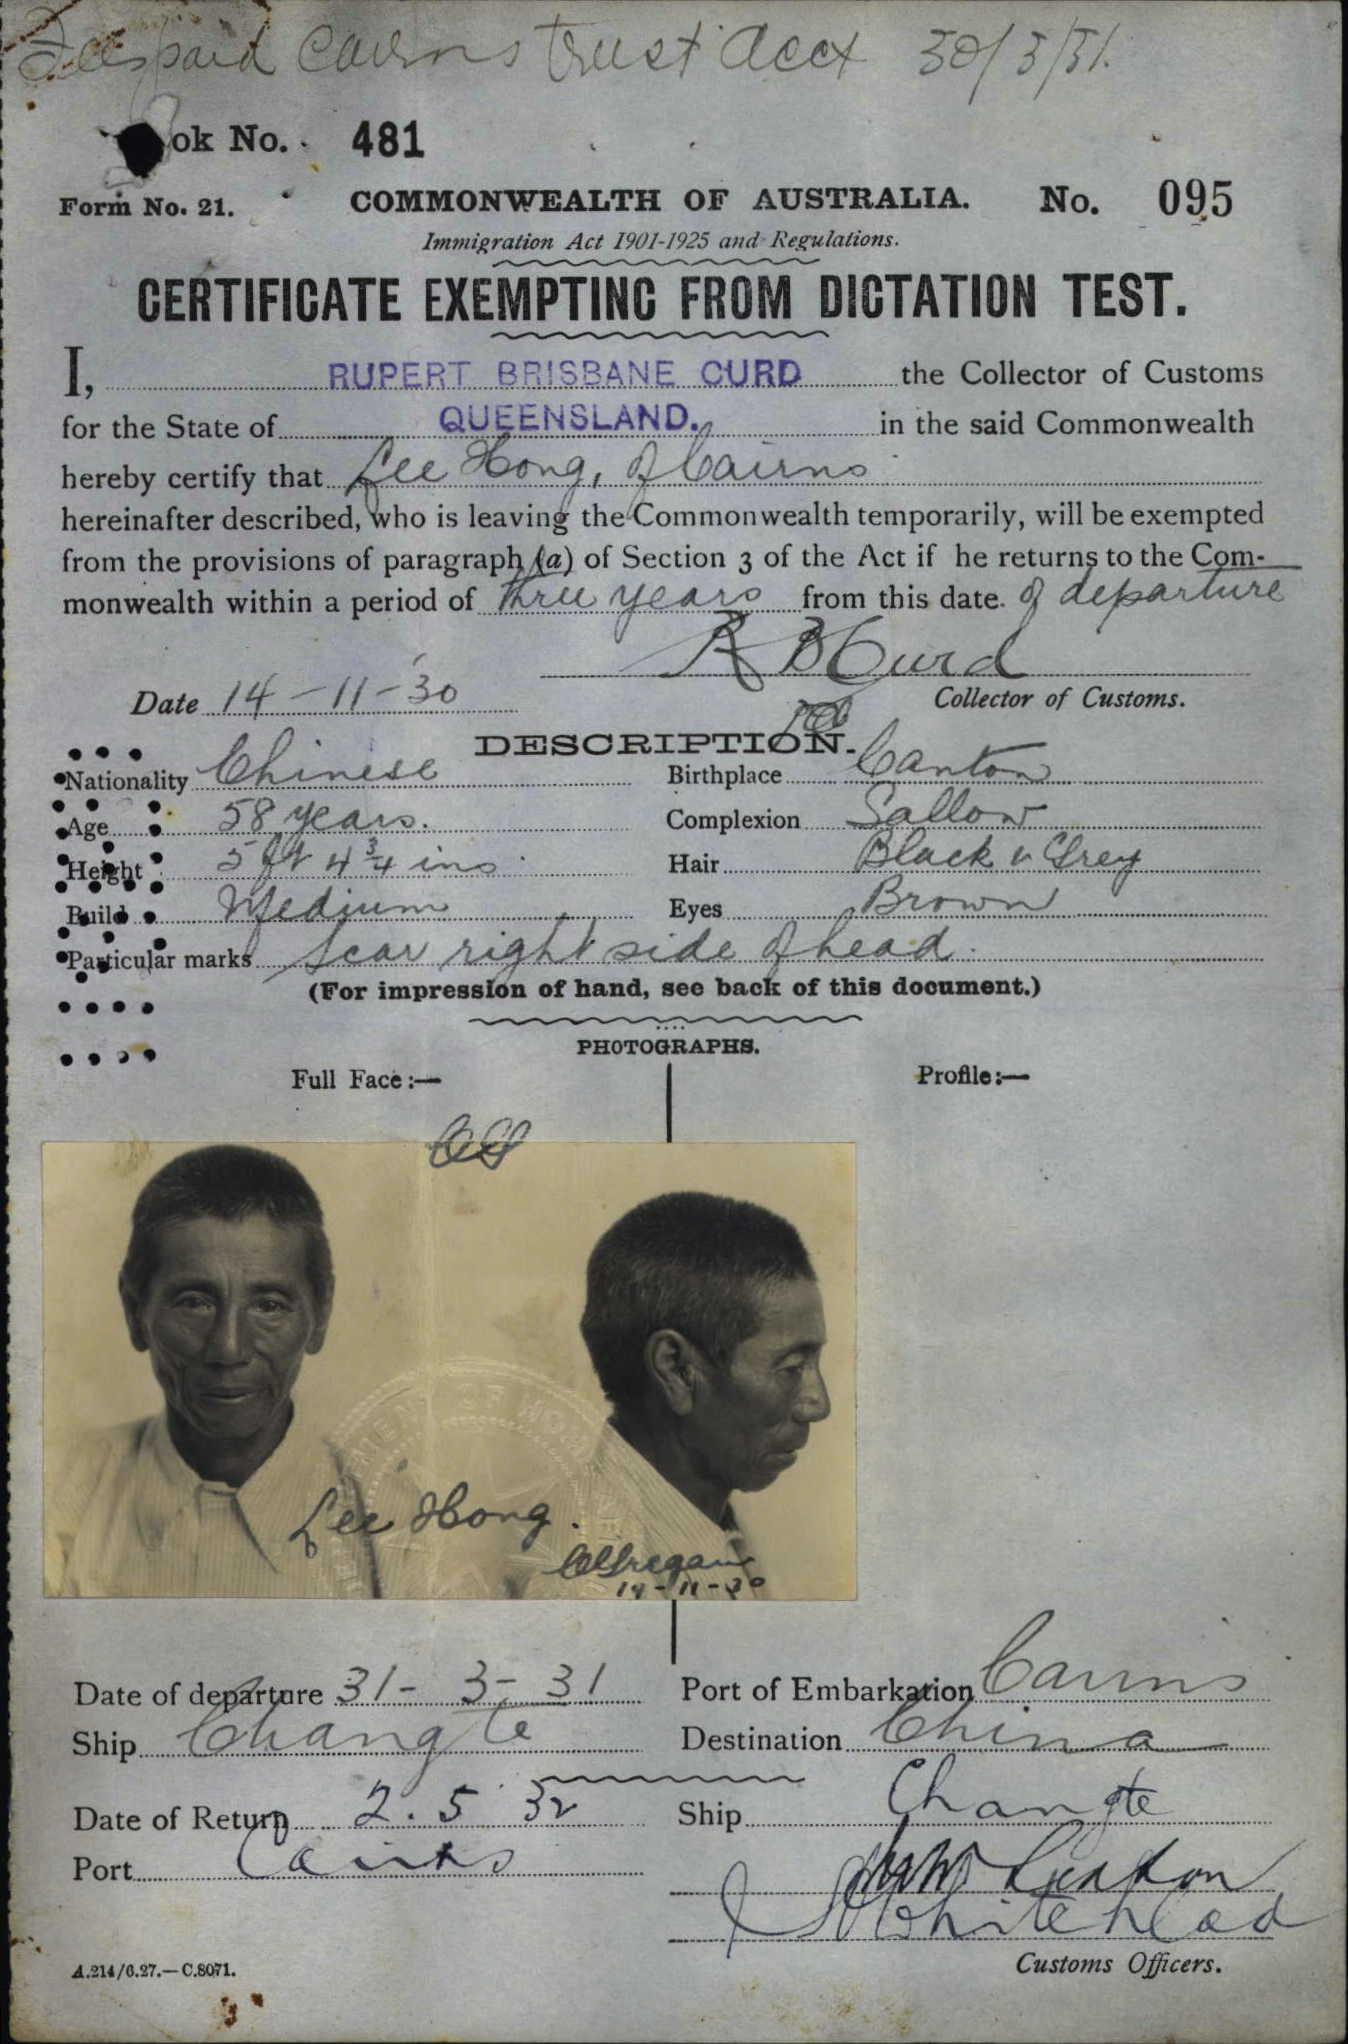 Fees paid Cairns trust acct 30/3/31.
ok No. 481
Form No. 21. COMMONWEALTH OF AUSTRALIA. No. 095
Immigration Act 1901-1925 and Regulations.
CERTIFICATE EXEMPTING FROM DICTATION TEST.
I, RUPERT BRISBANE CURD the Collector of Customs
for the State of QUEENSLAND. in the said Commonwealth
hereby certify that Lee Hong, of Cairns
hereinafter described, who is leaving the Commonwealth temporarily, will be exempted
from the provisions of paragraph (a) of Section 3 of the Act if he returns to the Com-
monwealth within a period of three years from this date of departure
R B Curd
Date 14-11-30 Collector of Customs.
DESCRIPTION.
Nationality Chinese Birthplace Canton
Age 58 years. Complexion Sallow
Height 5 ft 4 3/4 ins Hair Black & Grey
Build Medium Eyes Brown
Particular marks Scar right side of head.
(For impression of hand, see back of this document.)
PHOTOGRAPHS.
Full Face:— Profile:—
Lee Hong.
14-11-30
Date of departure 31-3-31 Port of Embarkation Cairns
Ship Changte Destination China
Date of Return 2.5 32 Ship Changte
Port Cairns
Whitehead
Customs Officers.
A.214/6.27.—C.8071.